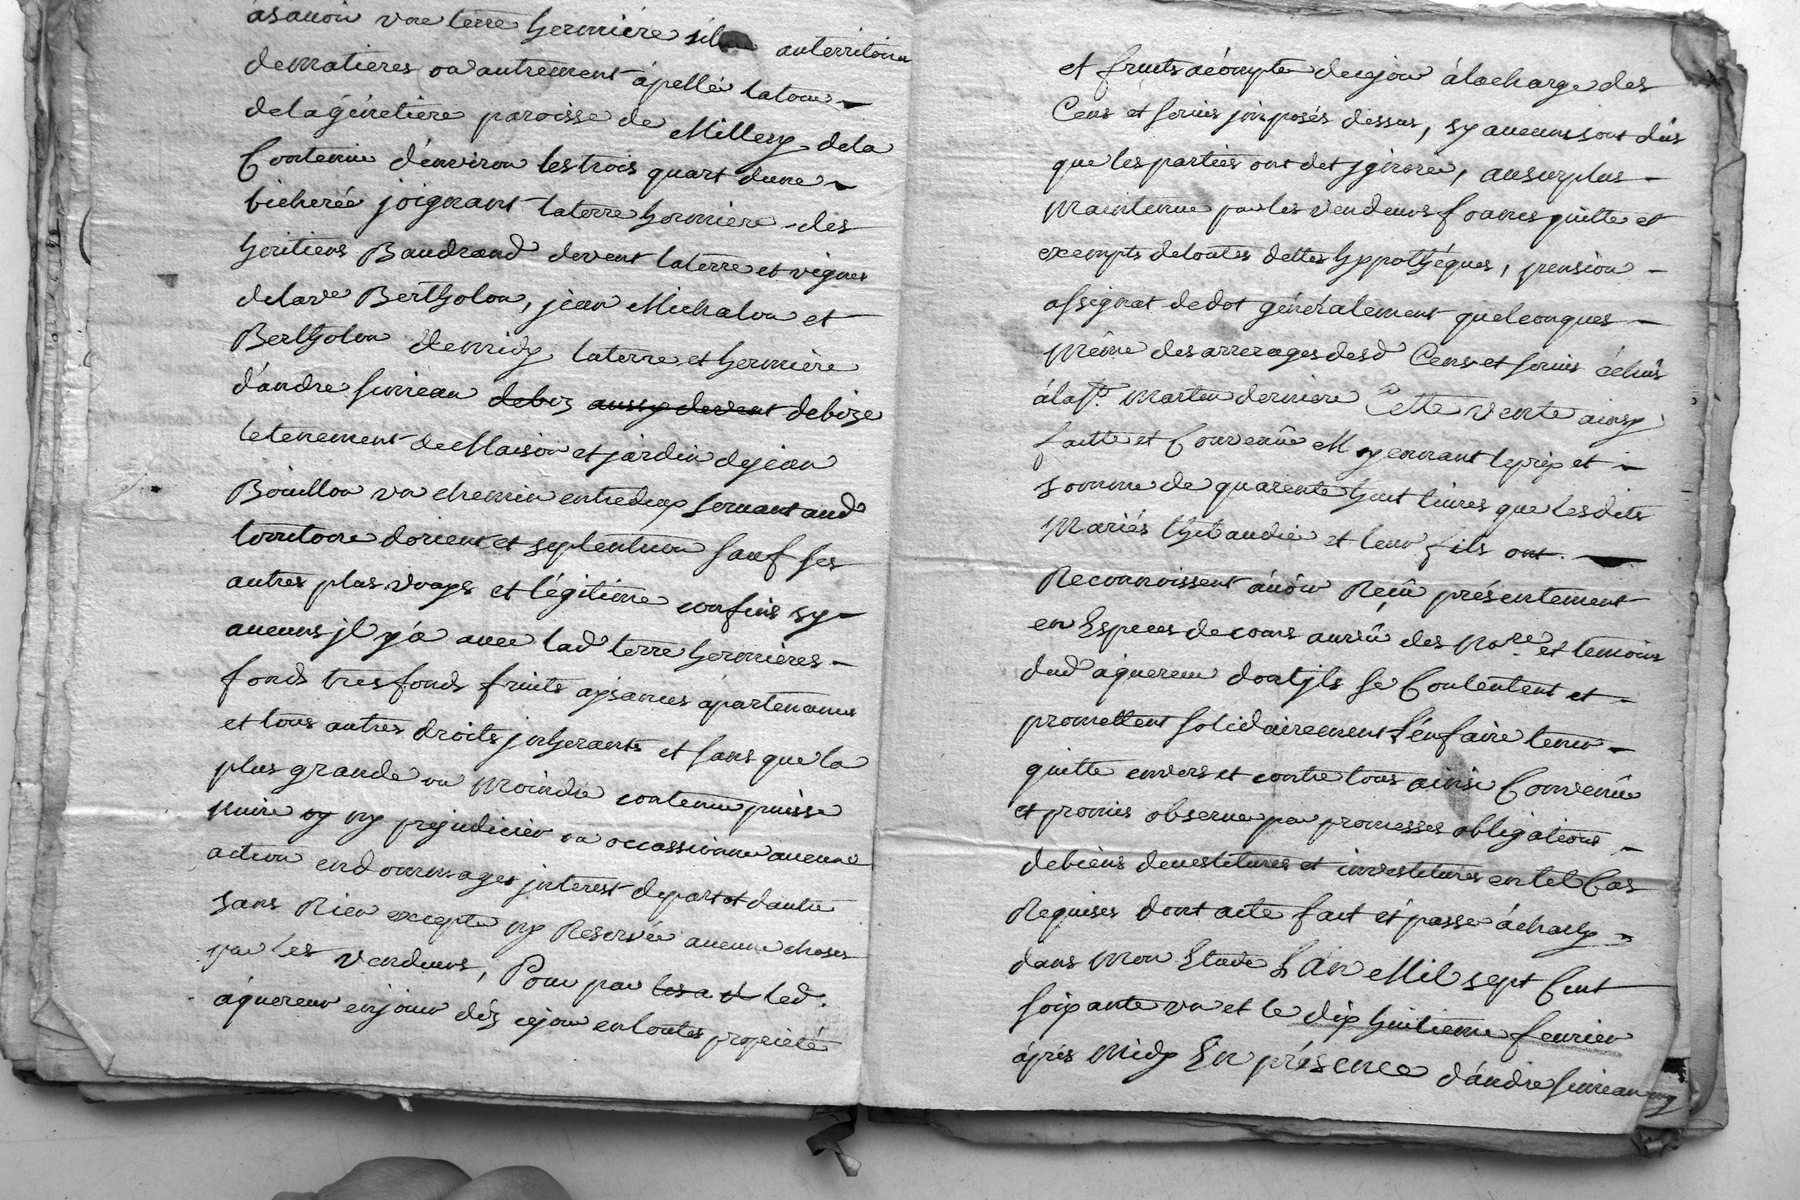 asavoir une terre hermiére au territoire
dematieres ou autrement ápellé latour
delagénetiere paroisse de Millery dela
Contenue d'environ lestrois quart dune
bicherée joignant laterre hermiere des
héritiers Baudrand devent laterre et vignes
delave Bertholon, jean Michalon et
Bertholon demidy laterre et hermiére
d'andre debize aussy devent debize
letenement de Maison et jardin dejean
Bouillon un chemin entredeux servant aud
territoire dorient et septentrion sauf ses
autres plus vrays et légitime confins sy
aucuns jl y'a avec lad terre hermiéres
fonds tresfonds fruits aysances ápartenances
et tous autres droits jnherants et sans que la
plus grande ou moindre contenue puisse
nuire ny ny prejudicier ou occassionner aucune
action endommages jnterest depart et dautre
sans Rien excepté ny Reservée aucune choses
par les vendeurs, Pour par led.
áquereur enjouir dés cejour entoutes propriété
et fruits acompter decejour álacharge des
Cens et servis jmposés dessus, sy aucuns sont dûs
que les parties ont dit jgnorer, ausurplus
Maintenue par les vendeurs franes quitte et
exempts detoutes dettes hyppothéques, pension
assignat dedot généralement quelconques
Même des arrerages desd Cens et servis échûs
álaSt. Martin derniere Cette vente ainsy
faitte et Convenûe Moyennant leprix et
somme de quarente huit livres que lesdits
Mariés thibaudié et leur fils ont
Reconnoissent avóir Reçû présentement
en Especes de cours auvû des nore. et temoins
dud aquereur dontjls se Contentent et
promettent solidairement l'énfaire tenir
quitte envers et contre tous ainsi Convenûe
et promis observer par promesses obligations
debiens devestitures et investitures entel Cas
Requises dont acte fait et passé ácharly
dans mon Etude L'an Mil sept Cent
soixante un et le dix huitieme fevrier
áprés midy En présence d'andre